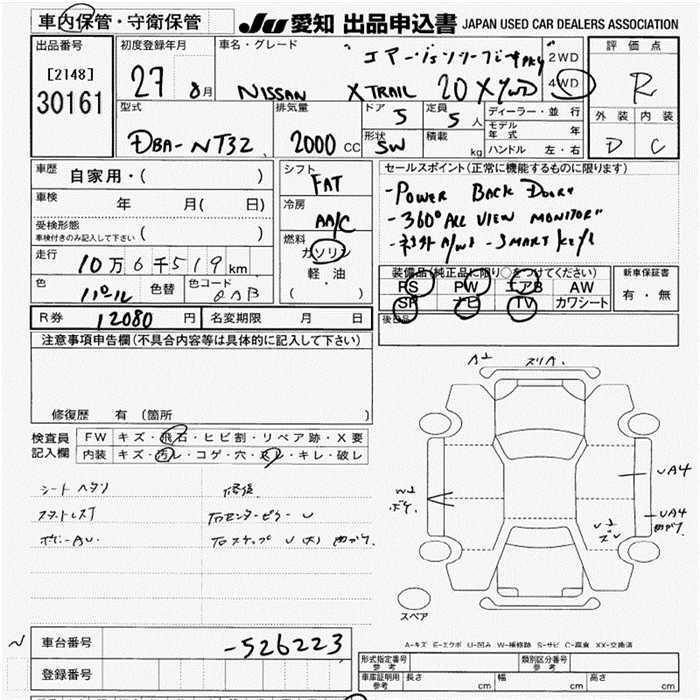 車内保管・守衛保管
JU 愛知 出品申込書 JAPAN USED CAR DEALERS ASSOCIATION
出品番号 [2148] 30161
初度登録年月 27 8月
車名・グレード
NISSAN XTRAIL 20X 4WD
2WD
4WD
評価点 R
外装 内装
D C
型式 DBA-NT32
排気量 2000 CC
ドア 5
定員 5 人
形状 SW
積載 kg
ディーラー・並行
モデル年式 年
ハンドル 左・右
車歴 自家用・( )
車検 年 月( 日)
受検形態
車検付きのみ記入して下さい ( )
走行 10万6千519km
色 パール 色替 色コード QAB
R券 12080円 名変期限 月 日
シフト FAT
冷房 AA/C
燃料
ガソリン
軽油
( )
セールスポイント(正常に機能するものに限ります)
-POWER BACK DOOR"
-360°ALL VIEW MONITOR"
-SMART KEY
装備品(純正品に限り○をつけてください)
PS PW エアB AW
SR ナビ TV カワシート
新車保証書
有・無
後日品
注意事項申告欄(不具合内容等は具体的に記入して下さい)
修復歴 有(箇所 )
検査員記入欄
FW キズ・飛石・ヒビ割・リペア跡・X要
内装 キズ・汚レ・コゲ・穴・スレ・キレ・破レ
シートヘタリ
修復
右センターピラーU
ボデーAU
右ステップ U(大)
A2 ズリA
W2
UA4
UA4
スペア
A-キズ E-エクボ U-凹み W-補修跡 S-サビ C-腐食 XX-交換済
車台番号 -526223
登録番号
形式指定番号 参考
類別区分番号 参考
車庫証明用 参考 長さ cm 幅 cm 高さ cm